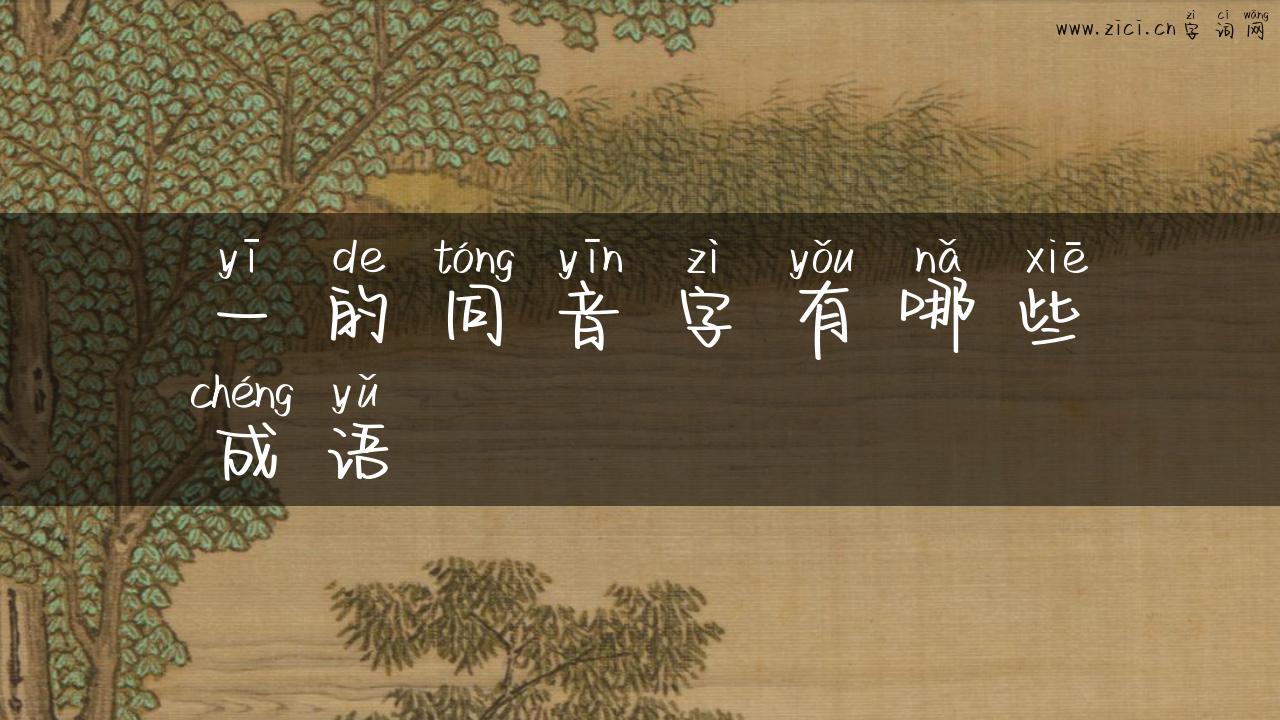 zì cí wǎng
www.zici.cn字词网
yī de tóng yīn zì yǒu nǎ xiē
一的同音字有哪些
chéng yǔ
成语